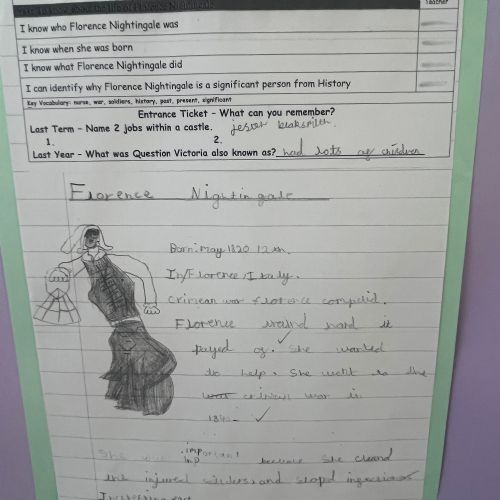 Teacher
I know who Florence Nightingale was
I know when she was born
I know what Florence Nightingale did
I can identify why Florence Nightingale is a significant person from History
Key Vocabulary: nurse, war, soldiers, history, past, present, significant
Entrance Ticket - What can you remember?
Last Term - Name 2 jobs within a castle. jester blaksmith
1. 2.
Last Year - What was Question Victoria also known as? had lots of children
Florence Nightingale
Born: May 1820 12th.
In/Florence/Italy.
Crimean war florence
Florence hard it
payed of. She wanted
to help. She went to the
war in
She was important because She
the injured and stopd